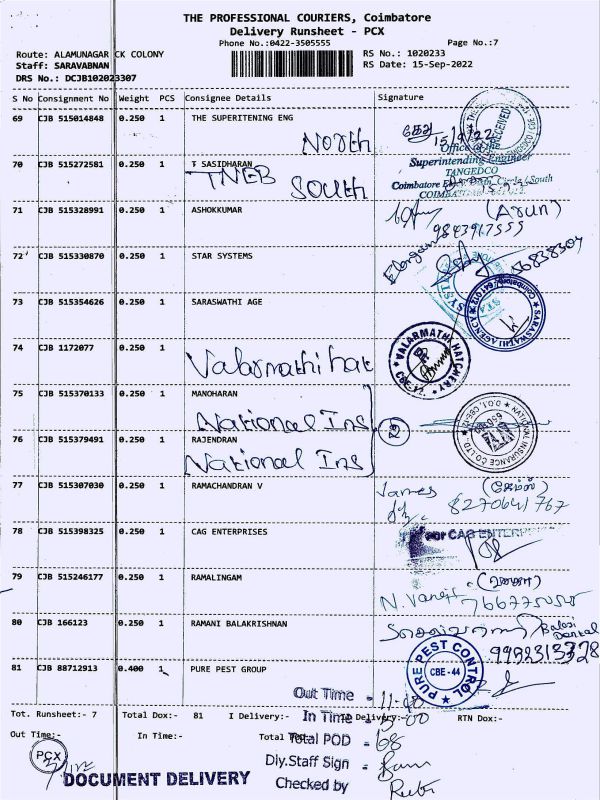 THE PROFESSIONAL COURIERS, Coimbatore
Delivery Runsheet - PCX
Phone No.:0422-3505555 Page No.:7
Route: ALAMUNAGAR CK COLONY RS No.: 1020233
Staff: SARAVABNAN RS Date: 15-Sep-2022
DRS No.: DCJB102023307
S No Consignment No Weight PCS Consignee Details Signature
69 CJB 515014848 0.250 1 THE SUPERITENING ENG
North
RECEIVED
Office of the
70 CJB 515272581 0.250 1 T SASIDHARAN Superintending Engineer
TNEB TANGEDCO
South Circle / South
71 CJB 515328991 0.250 1 ASHOKKUMAR (Arun)
9843917555
72 CJB 515330870 0.250 1 STAR SYSTEMS
73 CJB 515354626 0.250 1 SARASWATHI AGE
SARASWATHI AGENCY
74 CJB 1172077 0.250 1 VALARMATHI HATCHERY
Valarmathi hat
75 CJB 515370133 0.250 1 MANOHARAN
National Ins
NATIONAL INSURANCE CO LTD
76 CJB 515379491 0.250 1 RAJENDRAN
National Ins
77 CJB 515307030 0.250 1 RAMACHANDRAN V James
8270641767
78 CJB 515398325 0.250 1 CAG ENTERPRISES For CAG ENTERPR
79 CJB 515246177 0.250 1 RAMALINGAM
80 CJB 166123 0.250 1 RAMANI BALAKRISHNAN Balaji
Dental
81 CJB 88712913 0.400 1 PURE PEST GROUP PURE PEST CONTROL
CBE-44
Out Time
Tot. Runsheet:- 7 Total Dox:- 81 I Delivery:- In Time Delivery:- RTN Dox:-
Out Time:- In Time:- Total POD = 68
PCX
DOCUMENT DELIVERY Dly.Staff Sign
Checked by